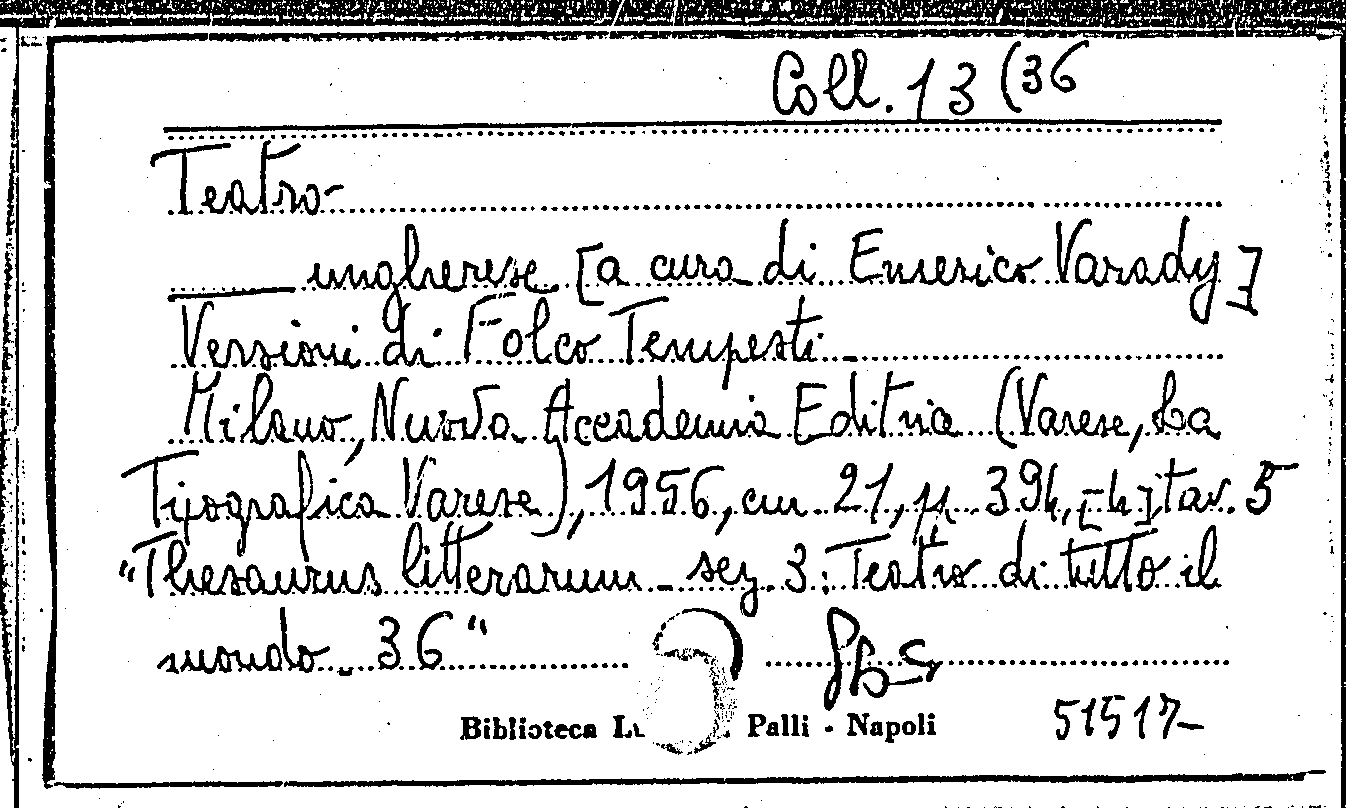 Coll. 13 (36
Teatro
ungherese [a cura di Emerico Varady]
Versioni di Folco Tempesti
Milano, Nuova Accademia Editrice (Varese, La
Tipografica Varese), 1956, cm. 21, p. 394, [4], tav. 5
"Thesaurus litterarum - sez. 3: Teatro di tutto il
mondo - 36"
Biblioteca Palli - Napoli
51517